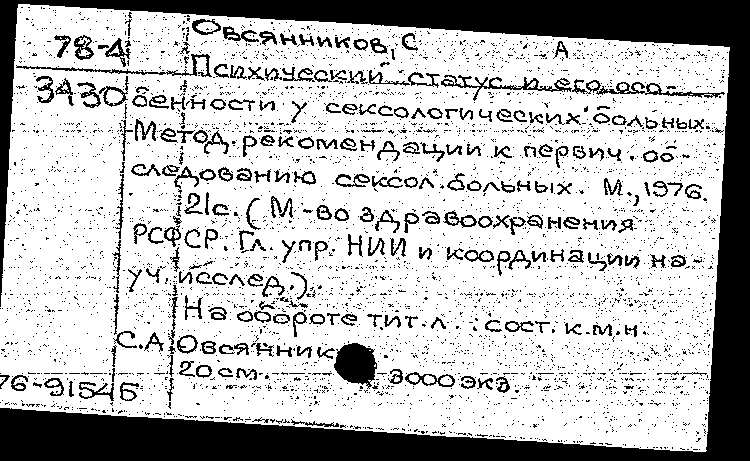 78-4 Овсянников, С А
Психический статус и его осо-
3430 бенности у сексологических больных.
Метод. рекомендации к первич. об-
следованию сексол. больных. М., 1976.
21с. (М-во здравоохранения
РСФСР. Гл. упр. НИИ и координации на-
уч. исслед.).
На обороте тит. л.: сост. к.м.н.
С.А. Овсянник .
20см. 3000экз.
76-91545